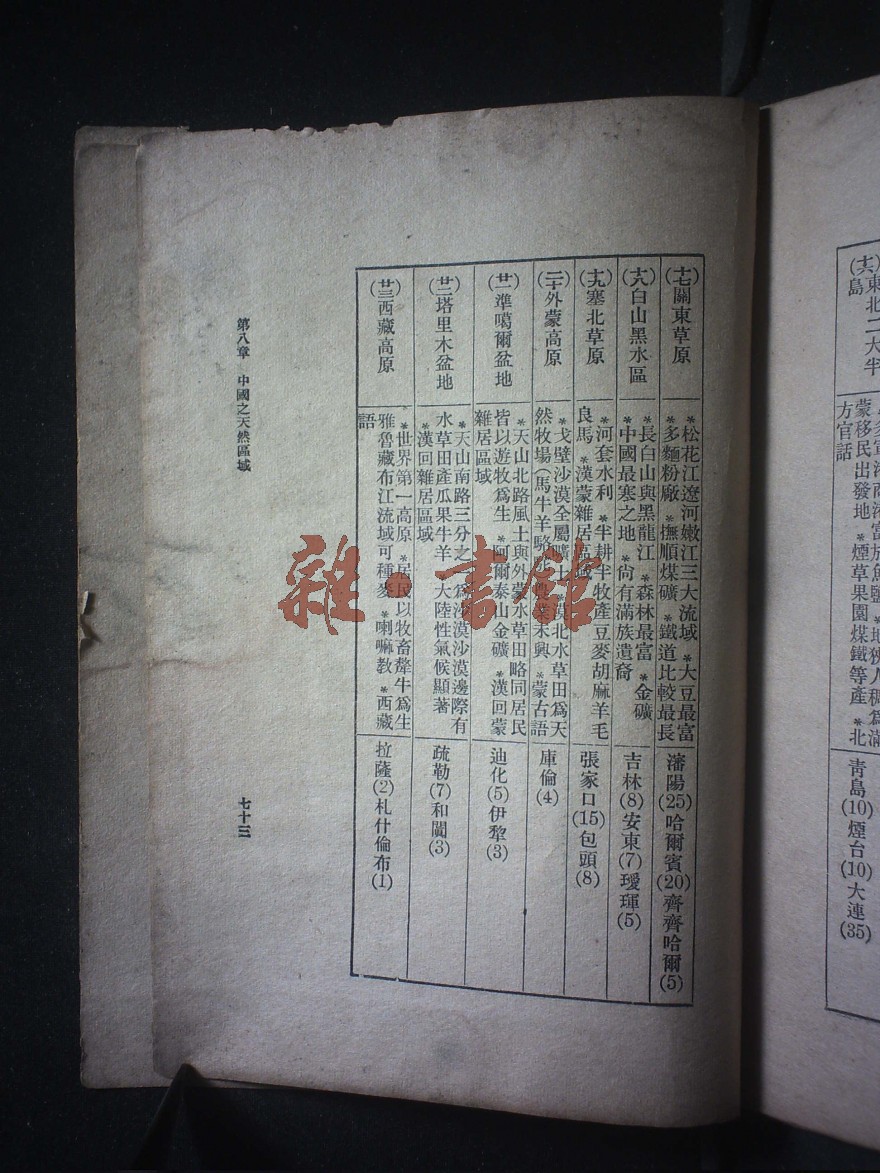 (十六)東北二大半
島
蒙移民出發地 *煙草果園煤鐵等產 *北
方官話
青島(10)煙台(10)大連(35)
(十七)關東草原
*松花江遼河嫩江三大流域 *大豆最富
*多麵粉廠 *撫順煤礦 *鐵道比較最長
瀋陽(25)哈爾賓(20)齊齊哈爾(5)
(十八)白山黑水區
*長白山與黑龍江 *森林最富 *金礦
*中國最寒之地 *尙有滿族遺裔
吉林(8)安東(7)璦琿(5)
(十九)塞北草原
*河套水利 *半耕半牧產豆麥胡麻羊毛
良馬 *漢蒙雜居
張家口(15)包頭(8)
(二十)外蒙高原
*戈壁沙漠全屬曠土 *漠北水草田爲天
然牧場(馬牛羊駱 未興 *蒙古語
庫倫(4)
(廿一)準噶爾盆地
*天山北路風土與外蒙水草田略同居民
皆以遊牧爲生 *阿爾泰山金礦 *漢回蒙
雜居區域
迪化(5)伊犂(3)
(廿二)塔里木盆地
*天山南路三分之 爲沙漠沙漠邊際有
水草田產瓜果牛羊 *大陸性氣候顯著
*漢回雜居區域
疏勒(7)和闐(3)
(廿三)西藏高原
*世界第一高原 *居民以牧畜犛牛爲生
雅魯藏布江流域可種麥 *喇嘛教 *西藏
語
拉薩(2)札什倫布(1)
第八章 中國之天然區域
七十三
雜·書館